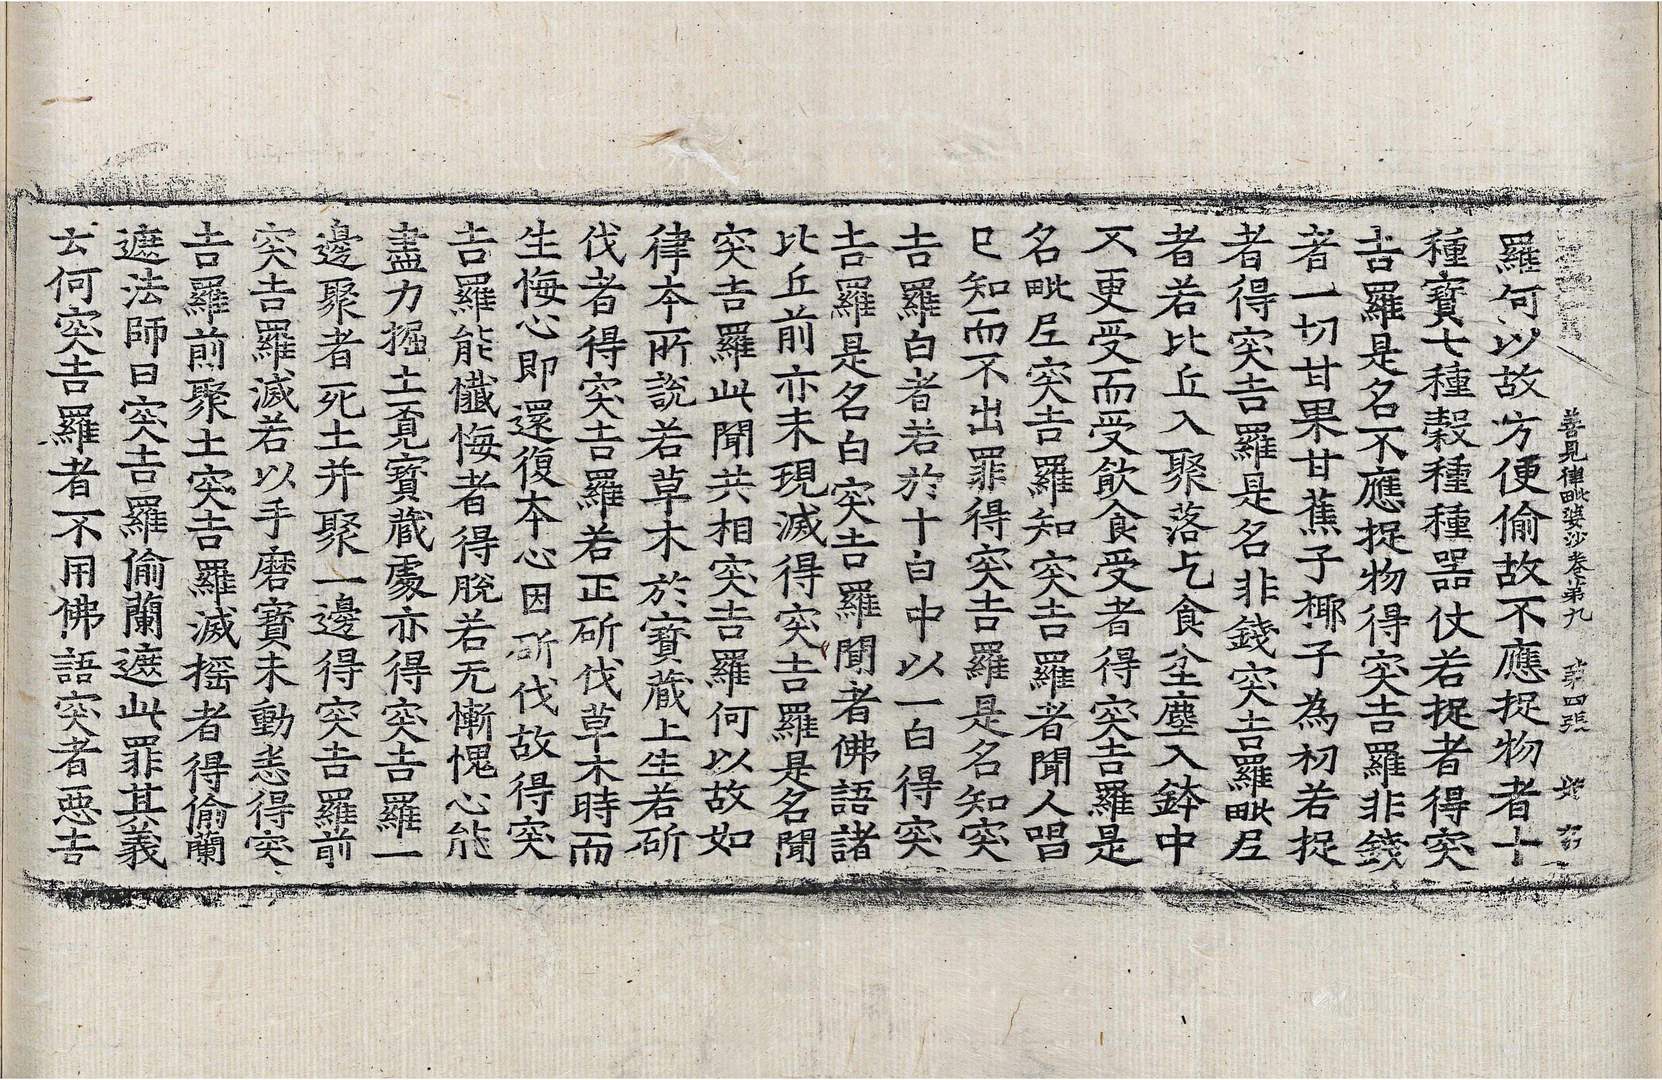 善見律毗婆沙卷第九　第四張
羅何以故方便偷故不應捉物者十
種寶七種穀種種器仗若捉者得突
吉羅是名不應捉物得突吉羅非錢
者一切甘果甘蕉子椰子為初若捉
者得突吉羅是名非錢突吉羅毗尼
者若比丘入聚落乞食坌塵入鉢中
不更受而受飲食受者得突吉羅是
名毗尼突吉羅知突吉羅者聞人唱
已知而不出罪得突吉羅是名知突
吉羅白者若於十白中以一白得突
吉羅是名白突吉羅聞者佛語諸
比丘前亦未現滅得突吉羅是名聞
突吉羅此聞共相突吉羅何以故如
律本所說若草木於寶藏上生若斫
伐者得突吉羅若正斫伐草木時而
生悔心即還復本心因斫伐故得突
吉羅能懺悔者得脫若无慚愧心能
盡力掘土覓寶藏處亦得突吉羅一
邊聚者死土并聚一邊得突吉羅前
突吉羅滅若以手磨寶未動悉得突
吉羅前聚土突吉羅滅搖者得偷蘭
遮法師曰突吉羅偷蘭遮此罪其義
云何突吉羅者不用佛語突者惡吉